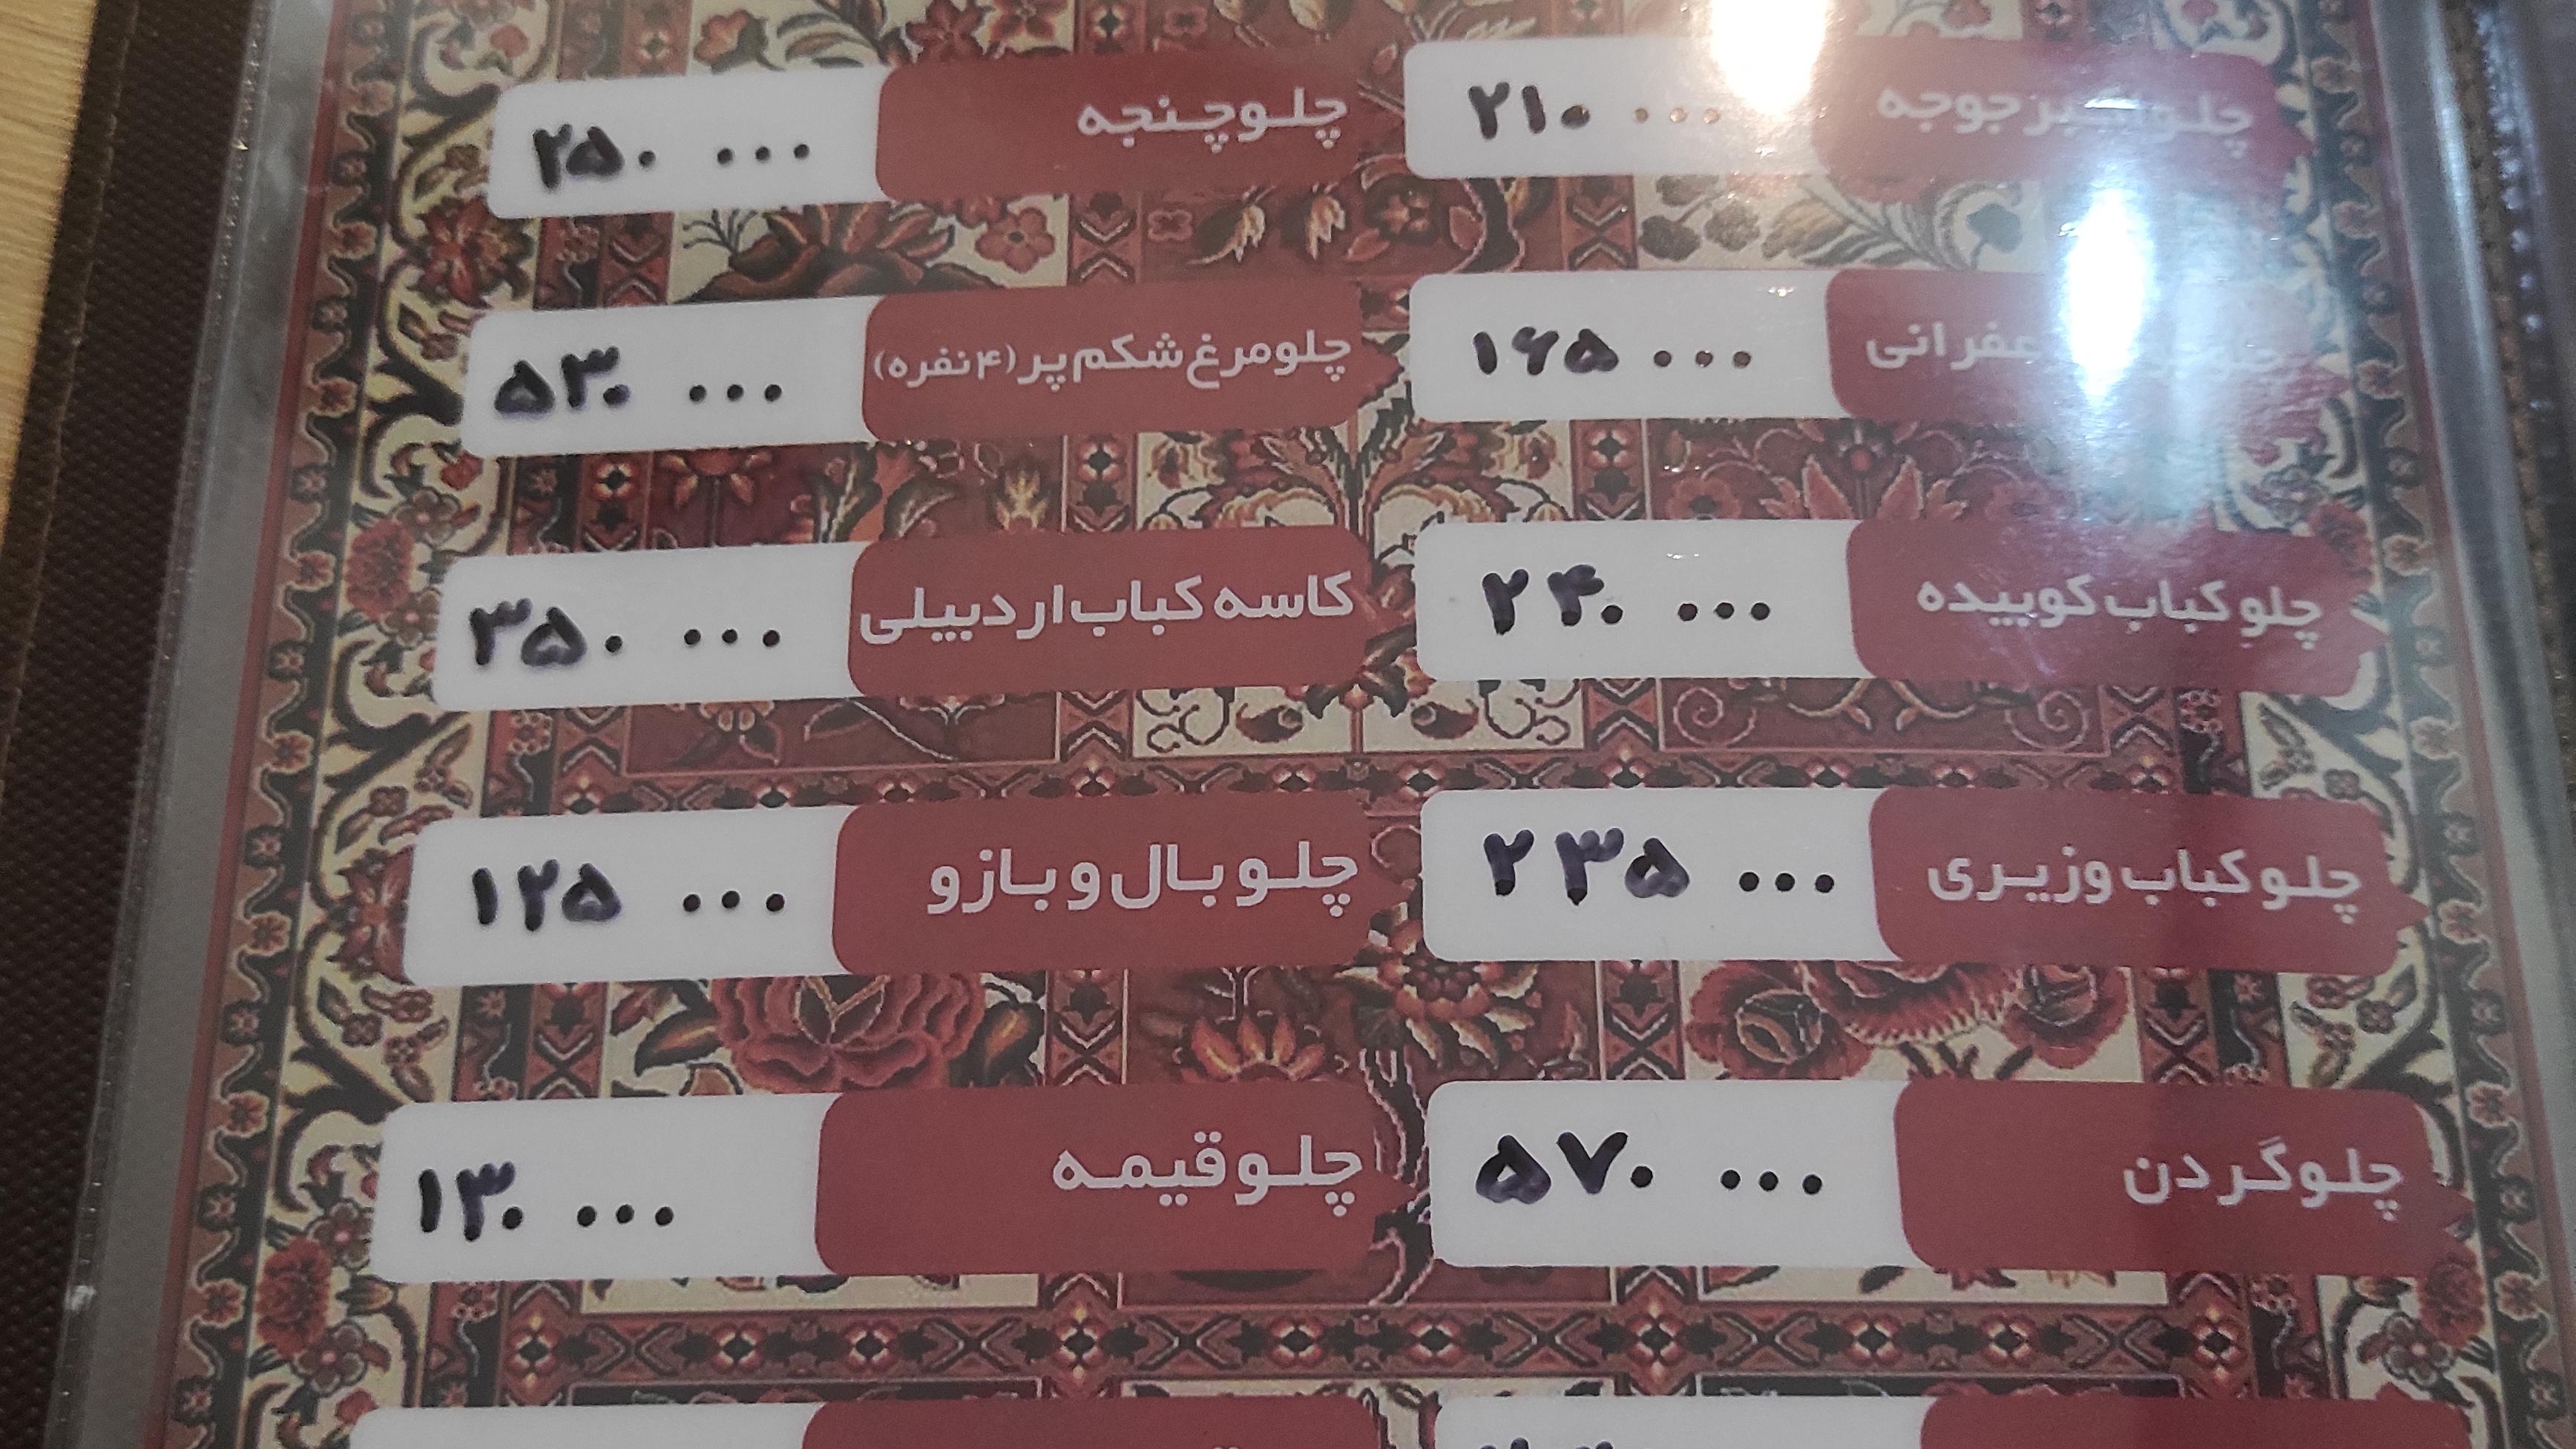 جوجه ۲۱۰ ۰۰۰
چلوچنجه ۲۵۰ ۰۰۰
۱۶۵ ۰۰۰
چلومرغ شکم پر (۴نفره) ۵۳۰ ۰۰۰
چلو کباب کوبیده ۲۴۰ ۰۰۰
کاسه کباب اردبیلی ۳۵۰ ۰۰۰
چلو کباب وزیری ۲۳۵ ۰۰۰
چلو بال و بازو ۱۲۵ ۰۰۰
چلو گردن ۵۷۰ ۰۰۰
چلو قیمه ۱۳۰ ۰۰۰